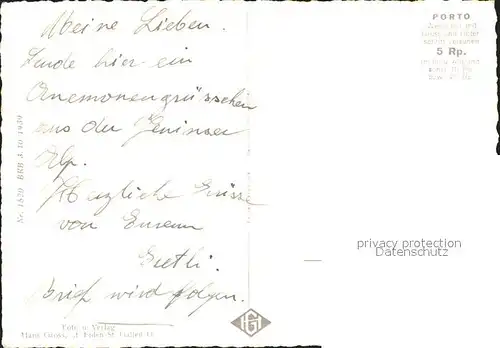 Meine Lieben.
Sende hier ein
Anemonengrüsschen
aus der Jeninser
Alp.
Herzliche Grüsse
von Eurem
Brief wird folgen.
Nr. 1829 BRB 3.10.1939
Foto u. Verlag
Hans Gross, St. Gallen
PORTO
5 Rp.
privacy protection
Datenschutz